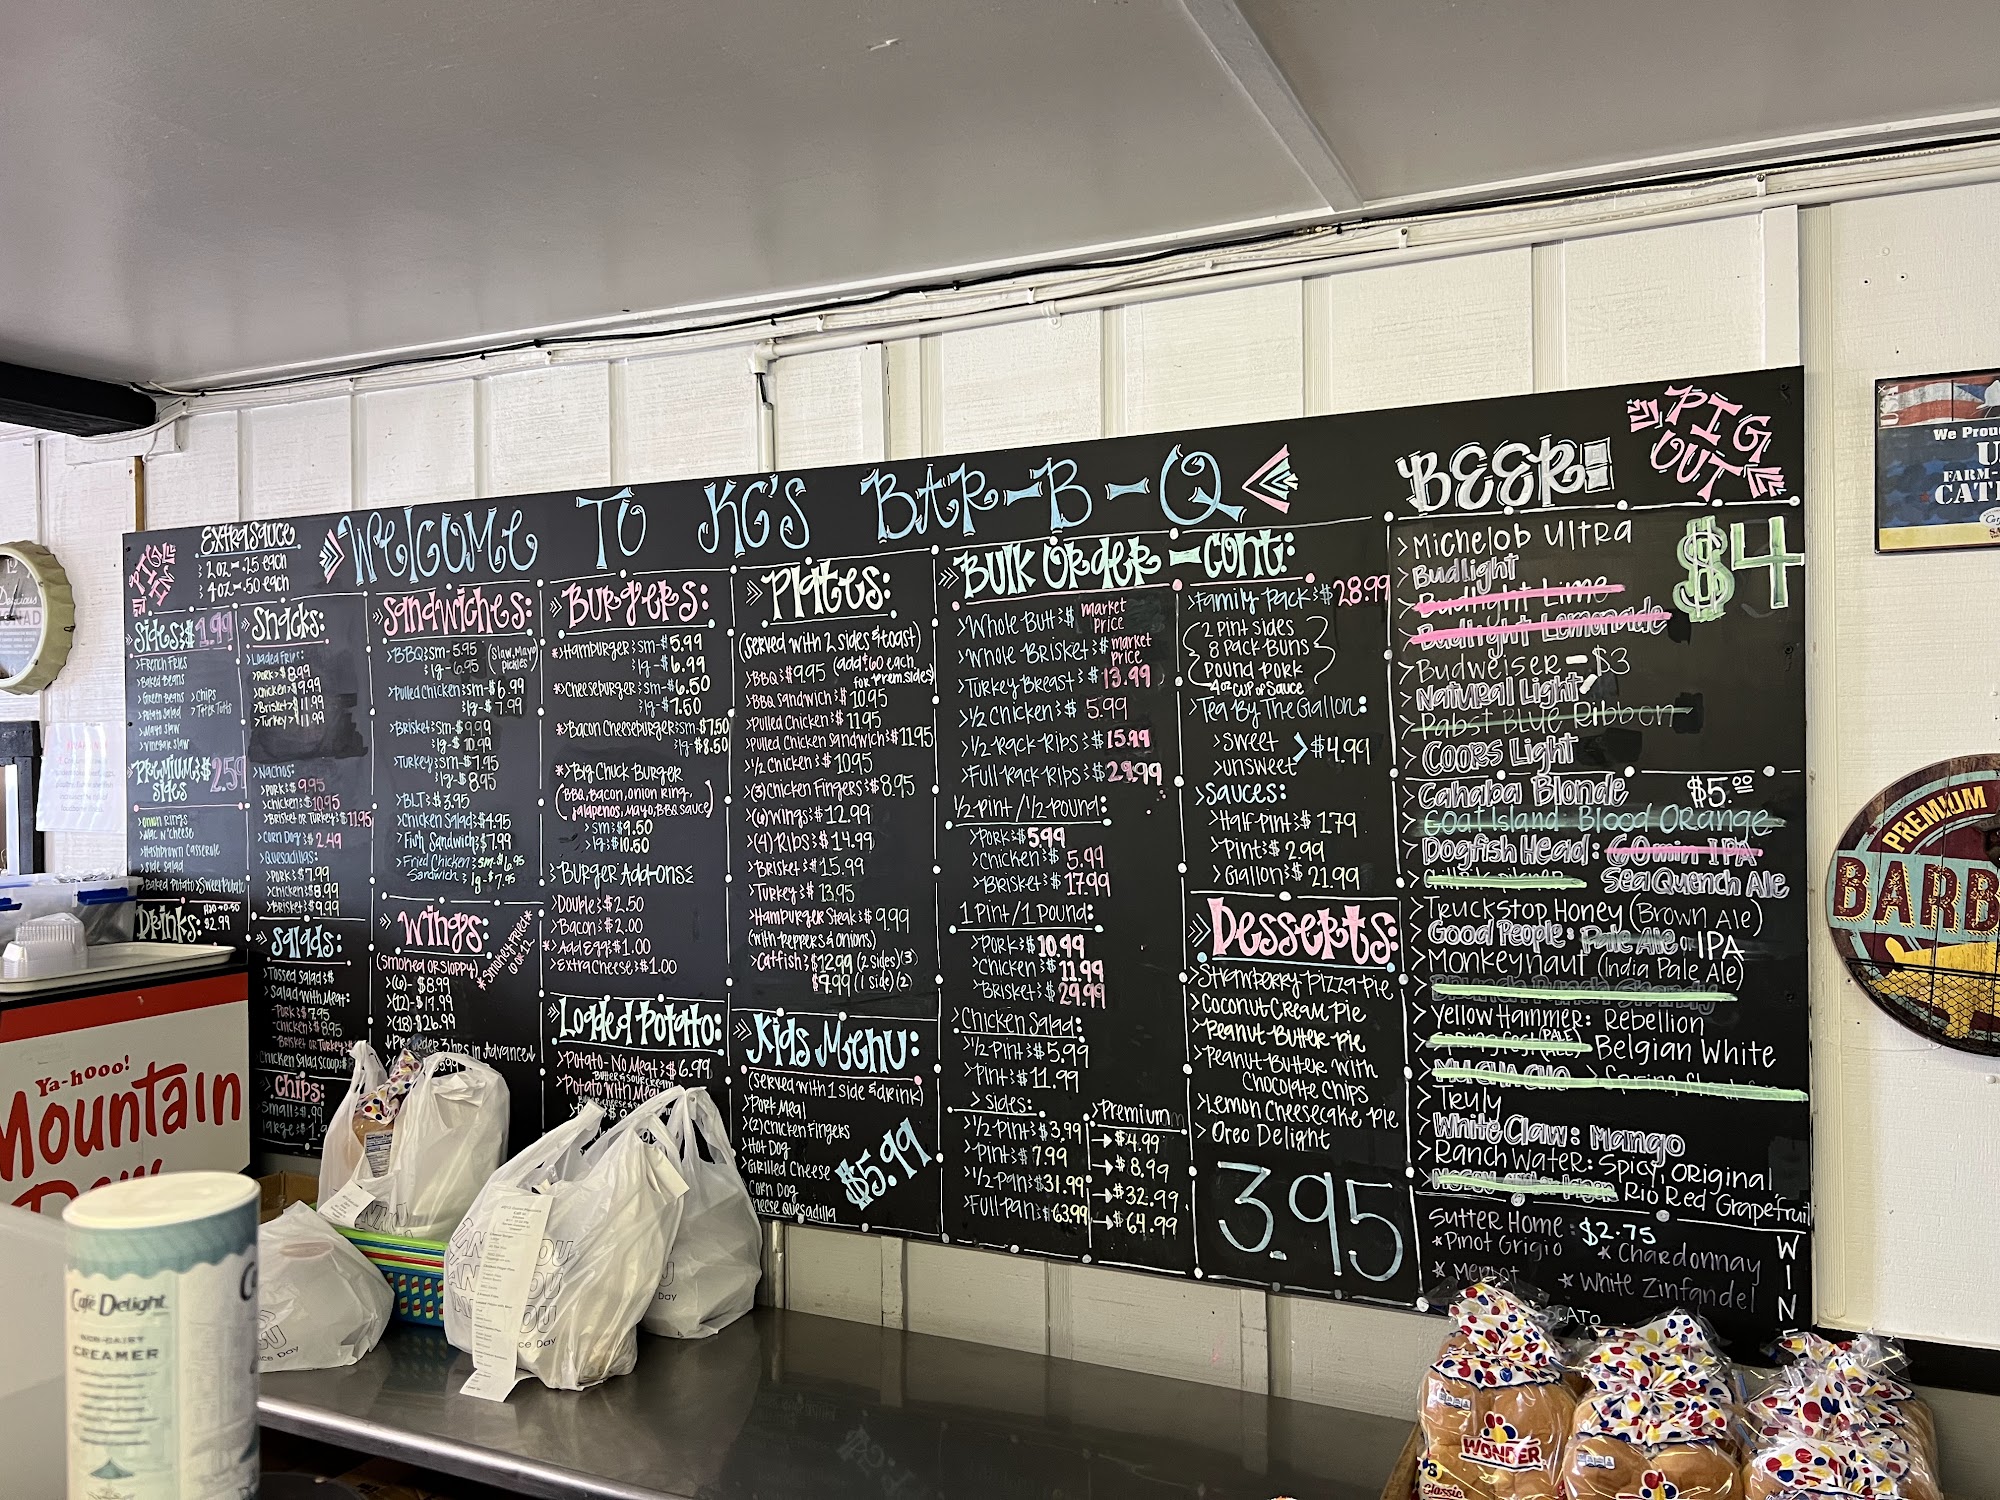 WELCOME TO KG'S BAR-B-Q
PIG IN!
EXTRA SAUCE
> 2 oz - .25 each
> 4 oz - .50 each
SIDES: $1.99
>French Fries
>Baked Beans
>Green Beans >Chips
>Potato Salad >Tater Tots
>Mayo Slaw
>Vinegar Slaw
PREMIUM SIDES $2.59
>Onion Rings
>Mac N'Cheese
>Hashbrown Casserole
>Side Salad
>Baked Potato >Sweet Potato
DRINKS: $2.99
SNACKS:
>Loaded Fries:
>Pork>$8.99
>Chicken>$9.99
>Brisket>$11.99
>Turkey>$11.99
>Nachos:
>Pork:$9.95
>Chicken:$10.95
>Brisket or Turkey:$11.95
>Corn Dog:$2.49
>Quesadillas:
>Pork:$7.99
>Chicken:$8.99
>Brisket:$9.99
SALADS:
>Tossed Salad:$
>Salad with Meat:
-Pork:$7.95
-Chicken:$8.95
-Brisket or Turkey:$
Chicken Salad Scoop:$
CHIPS:
Small:$.99
large:$1.9
SANDWICHES:
>BBQ:sm-5.95 (Slaw, Mayo, pickles)
:lg-6.95
>Pulled Chicken:sm-$6.99
:lg-$7.99
>Brisket:sm-$9.99
:lg-$10.99
>Turkey:sm-$7.95
:lg-$8.95
>BLT:$3.95
>Chicken Salad:$4.95
>Fish Sandwich:$7.99
>Fried Chicken Sandwich: sm-$6.95
lg-$7.95
WINGS:
(smoked or sloppy)
*Smokey Fried* 10 or 12
>(6)-$8.99
>(12)-$17.99
>(18)-$26.99
↓Pre order 3 hrs in Advance↓
BURGERS:
*>Hamburger:sm-$5.99
:lg-$6.99
*>Cheeseburger:sm-$6.50
:lg-$7.50
*>Bacon Cheeseburger:sm-$7.50
:lg-$8.50
*>Big Chuck Burger
(BBQ, Bacon, Onion Ring, Jalapenos, Mayo, BBQ sauce)
>sm:$9.50
>lg:$10.50
Burger Add-ons
>Double:$2.50
>Bacon:$2.00
*>Add Egg:$1.00
>Extra Cheese:$1.00
LOADED POTATO:
>Potato-No Meat:$6.99
Butter & Sour Cream
>Potato with Meat
PLATES:
(Served with 2 sides & toast)
>BBQ:$9.95 (add $.60 each for prem. sides)
>BBQ Sandwich:$10.95
>Pulled Chicken:$11.95
>Pulled Chicken Sandwich:$11.95
>½ Chicken:$10.95
>(3)Chicken Fingers:$8.95
>(6)Wings:$12.99
>(4)Ribs:$14.99
>Brisket:$15.99
>Turkey:$13.95
>Hamburger Steak:$9.99
(with Peppers & onions)
>Catfish:$12.99 (2 sides)(3)
$9.99 (1 side)(2)
KIDS MENU:
(Served with 1 side & drink)
>Pork Meal
>(2)Chicken Fingers
>Hot Dog
>Grilled Cheese
>Corn Dog
>Cheese Quesadilla
$5.99
BULK ORDER - CONT:
>Whole Butt:$ market price
>Whole Brisket:$ market price
>Turkey Breast:$13.99
>½ Chicken:$5.99
>½ Rack Ribs:$15.99
>Full Rack Ribs:$29.99
½ Pint/½ Pound:
>Pork:$5.99
>Chicken:$5.99
>Brisket:$17.99
1 Pint/1 Pound:
>Pork:$10.99
>Chicken:$11.99
>Brisket:$29.99
>Chicken Salad:
>½ Pint:$5.99
>Pint:$11.99
>Sides: >Premium
>½ Pint:$3.99 →$4.99
>Pint:$7.99 →$8.99
>½ Pan:$31.99 →$32.99
>Full Pan:$63.99 →$64.99
>Family Pack:$28.99
(2 Pint Sides
8 Pack Buns
Pound Pork
4oz cup of Sauce)
>Tea By The Gallon:
>Sweet
>unsweet >$4.99
>Sauces:
>Half Pint:$1.79
>Pint:$2.99
>Gallon:$21.99
DESSERTS:
>Strawberry Pizza Pie
>Coconut Cream Pie
>Peanut Butter Pie
>Peanut Butter with Chocolate Chips
>Lemon Cheesecake Pie
>Oreo Delight
3.95
BEER:
PIG OUT
$4
>Michelob Ultra
>Budlight
>Budlight Lime
>Budlight Lemonade
>Budweiser - $3
>Natural Light
>Pabst Blue Ribbon
>Coors Light
>Cahaba Blonde $5.00
>Goat Island: Blood Orange
>Dogfish Head: 60 min IPA
SeaQuench Ale
>Truckstop Honey (Brown Ale)
>Good People: Pale Ale, IPA
>Monkeynaut (India Pale Ale)
>Yellowhammer: Rebellion
Belgian White
>Truly
>White Claw: Mango
>Ranch Water: Spicy, Original
Rio Red Grapefruit
Sutter Home: $2.75
*Pinot Grigio *Chardonnay
*Merlot *White Zinfandel
WIN
Ya-hooo!
Mountain
Dew
Café Delight
NON-DAIRY
CREAMER
We Prou
FARM-
CAT
PREMIUM
BARB
WONDER
Classic